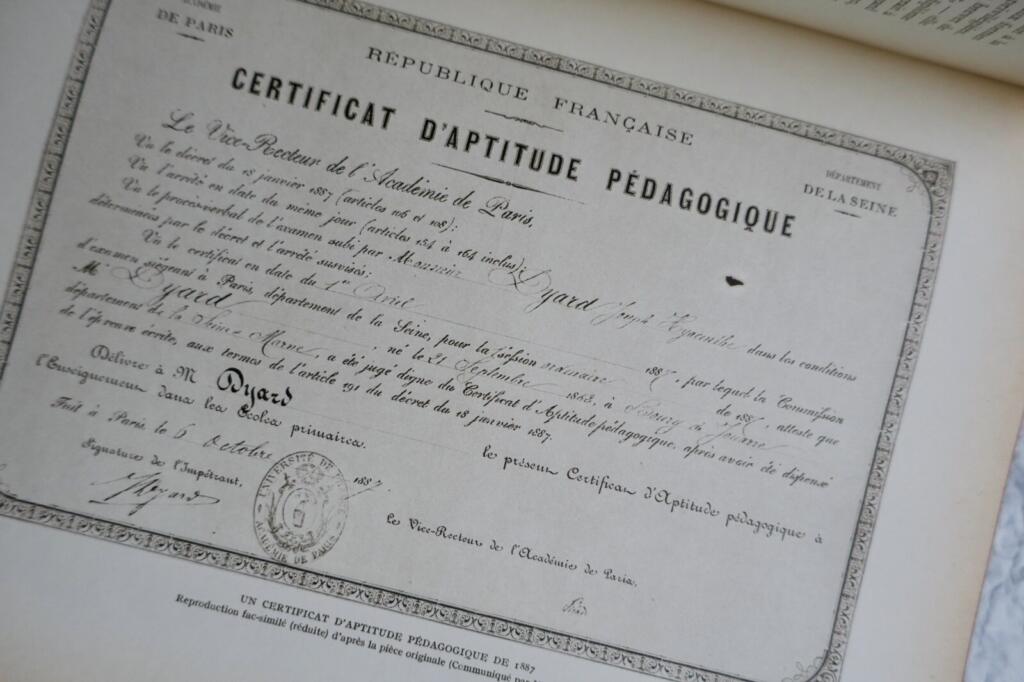 ACADÉMIE
DE PARIS
RÉPUBLIQUE FRANÇAISE
CERTIFICAT D'APTITUDE PÉDAGOGIQUE
DÉPARTEMENT
DE LA SEINE
Le Vice-Recteur de l'Académie de Paris,
Vu le décret du 18 janvier 1887 (articles 106 et 108);
Vu l'arrêté en date du même jour (articles 154 à 164 inclus);
Vu le procès-verbal de l'examen subi par Monsieur Dyard Joseph Hyacinthe dans les conditions
déterminées par le décret et l'arrêté susvisés;
Vu le certificat en date du 1er Avril 1887, par lequel la Commission
d'examen siégeant à Paris, département de la Seine, pour la session ordinaire de 1887, atteste que
M. Dyard, né le 21 Septembre 1863, à Jouarre
département de la Seine-Marne, a été jugé digne du Certificat d'Aptitude pédagogique, après avoir été dispensé
de l'épreuve écrite, aux termes de l'article 191 du décret du 18 janvier 1887.
Délivre à M Dyard le présent Certificat d'Aptitude pédagogique à
l'Enseignement dans les Écoles primaires.
Fait à Paris, le 6 Octobre 1887.
Signature de l'Impétrant,
Dyard
UNIVERSITÉ DE
ACADÉMIE DE PARIS
Le Vice-Recteur de l'Académie de Paris,
UN CERTIFICAT D'APTITUDE PÉDAGOGIQUE DE 1887
Reproduction fac-similé (réduite) d'après la pièce originale (Communiqué par